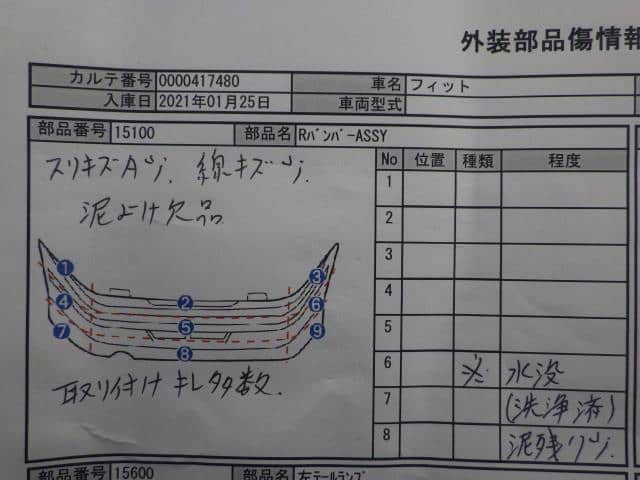 外装部品傷情報
カルテ番号 0000417480 車名 フィット
入庫日 2021年01月25日 車両型式
部品番号 15100 部品名 Rバンパー ASSY
スリキズA小、線キズ小、
泥よけ欠品
No 位置 種類 程度
1
2
3
4
5
6 ※ 水没
7 (洗浄済)
8 泥残り小
① ② ③
④ ⑤ ⑥
⑦ ⑧ ⑨
取り付けキレ多数.
部品番号 15600 部品名 左テールランプ